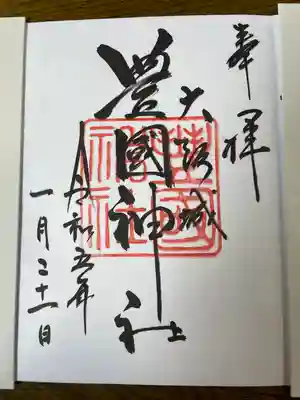 奉拝
大阪城
豊國神社
令和五年
一月二十一日